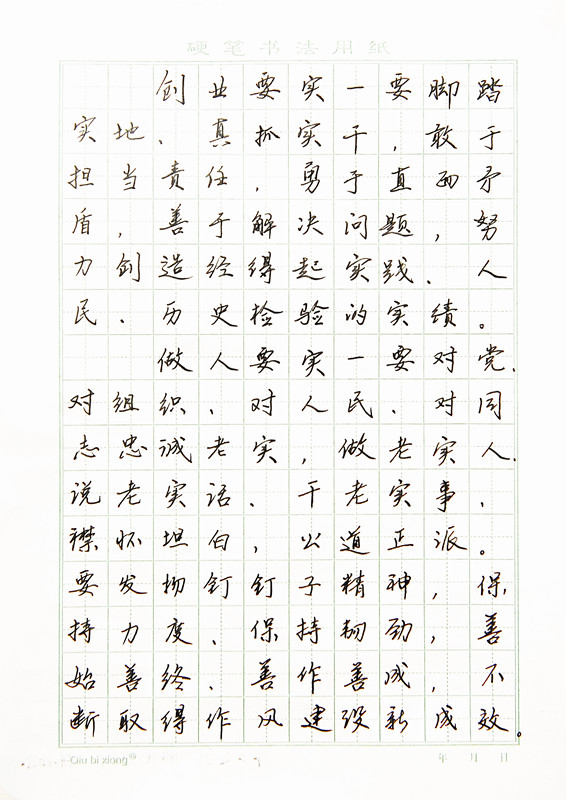 硬笔书法用纸
创业要实一要脚踏
实地、真抓实干,敢于
担当责任,勇于直面矛
盾,善于解决问题,努
力创造经得起实践、人
民、历史检验的实绩。
做人要实一要对党、
对组织、对人民、对同
志忠诚老实,做老实人、
说老实话、干老实事,
襟怀坦白,公道正派。
要发扬钉钉子精神,保
持力度、保持韧劲,善
始善终、善作善成,不
断取得作风建设新成效。
Qiu bi xiang®
年 月 日